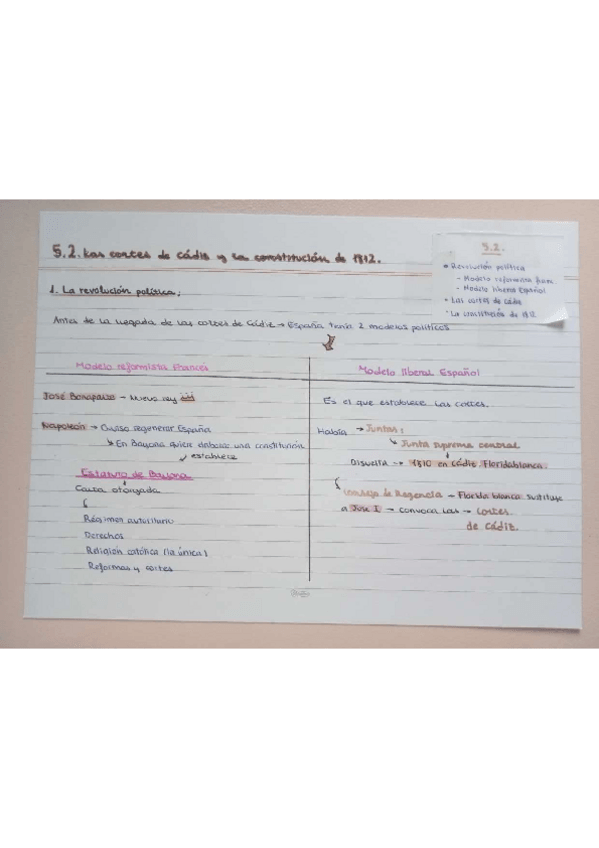 5.2. Las cortes de Cádiz y la constitución de 1812.
5.2.
Revolución política
- Modelo reformista franc.
- Modelo liberal Español
Las cortes de Cádiz
La constitución de 1812
1. La revolución política:
Antes de la llegada de las cortes de Cádiz → España tenía 2 modelos políticos
Modelo reformista francés
José Bonaparte - Nuevo rey
Napoleón → Quiso regenerar España
↳ En Bayona quiere elaborar una constitución
↙ establece
Estatuto de Bayona
Carta otorgada
Régimen autoritario
Derechos
Religión católica (la única)
Reformas y cortes
Modelo liberal Español
Es el que establece las cortes.
Había → Juntas:
↳ Junta suprema central
Disuelta → 1810 en Cádiz. Floridablanca.
Consejo de Regencia → Florida blanca sustituye
a José I → convoca las → cortes
de Cádiz.